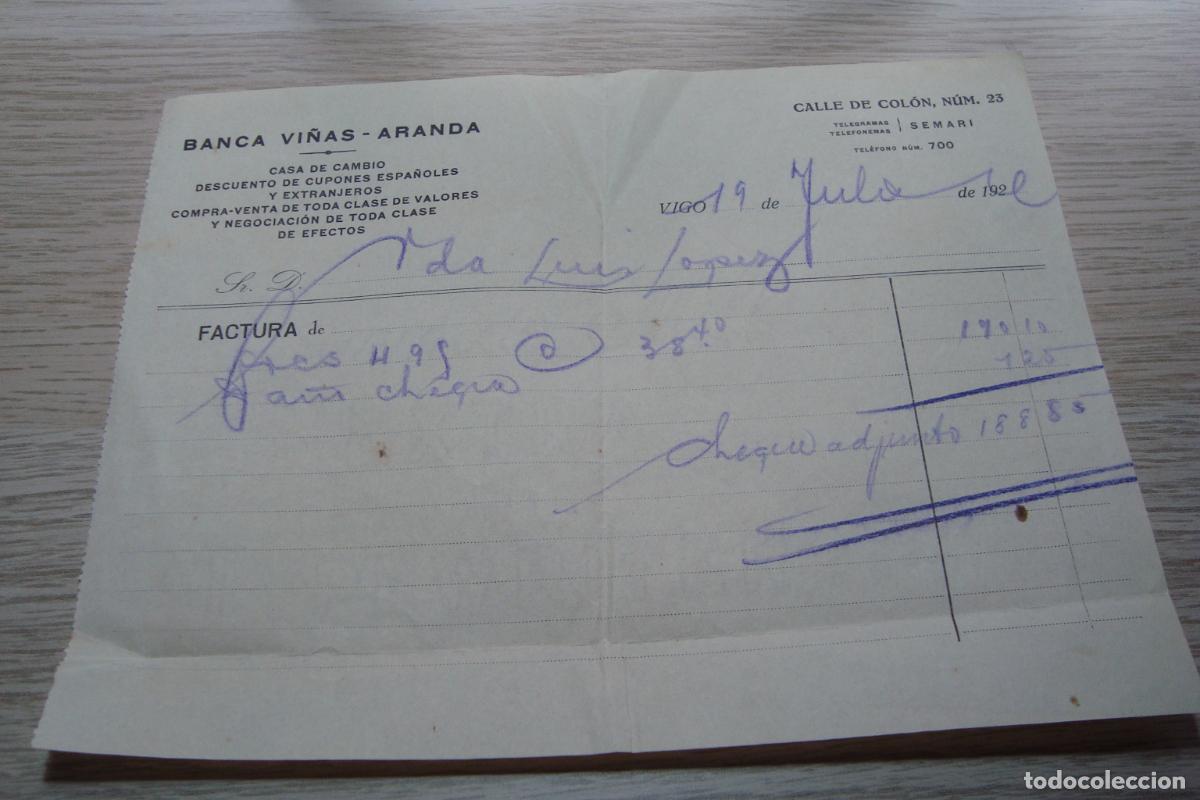 BANCA VIÑAS - ARANDA
CASA DE CAMBIO
DESCUENTO DE CUPONES ESPAÑOLES
Y EXTRANJEROS
COMPRA-VENTA DE TODA CLASE DE VALORES
Y NEGOCIACIÓN DE TODA CLASE
DE EFECTOS
CALLE DE COLÓN, NÚM. 23
TELEGRAMAS
TELEFONEMAS | SEMARI
TELÉFONO NÚM. 700
VIGO 19 de Julio de 192
Sr. D. Vda Luis Lopez
FACTURA de
495 @ 38.40 190 10
1 25
Cheque adjunto 188 85
todocoleccion